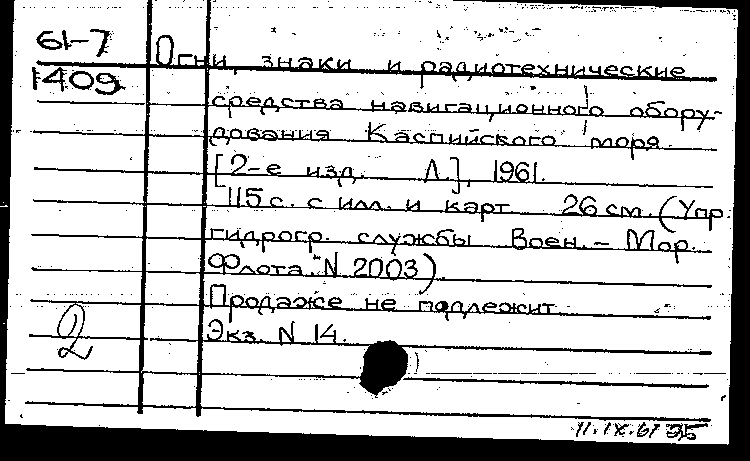 61-7
1409
Огни, знаки и радиотехнические
средства навигационного обору-
дования Каспийского моря
[2-е изд. Л.], 1961.
115 с. с илл. и карт 26 см. (Упр.
гидрогр. службы Воен.-Мор.
Флота. N 2003)
Продаже не подлежит
Экз. N 14.
2
11.IX.61